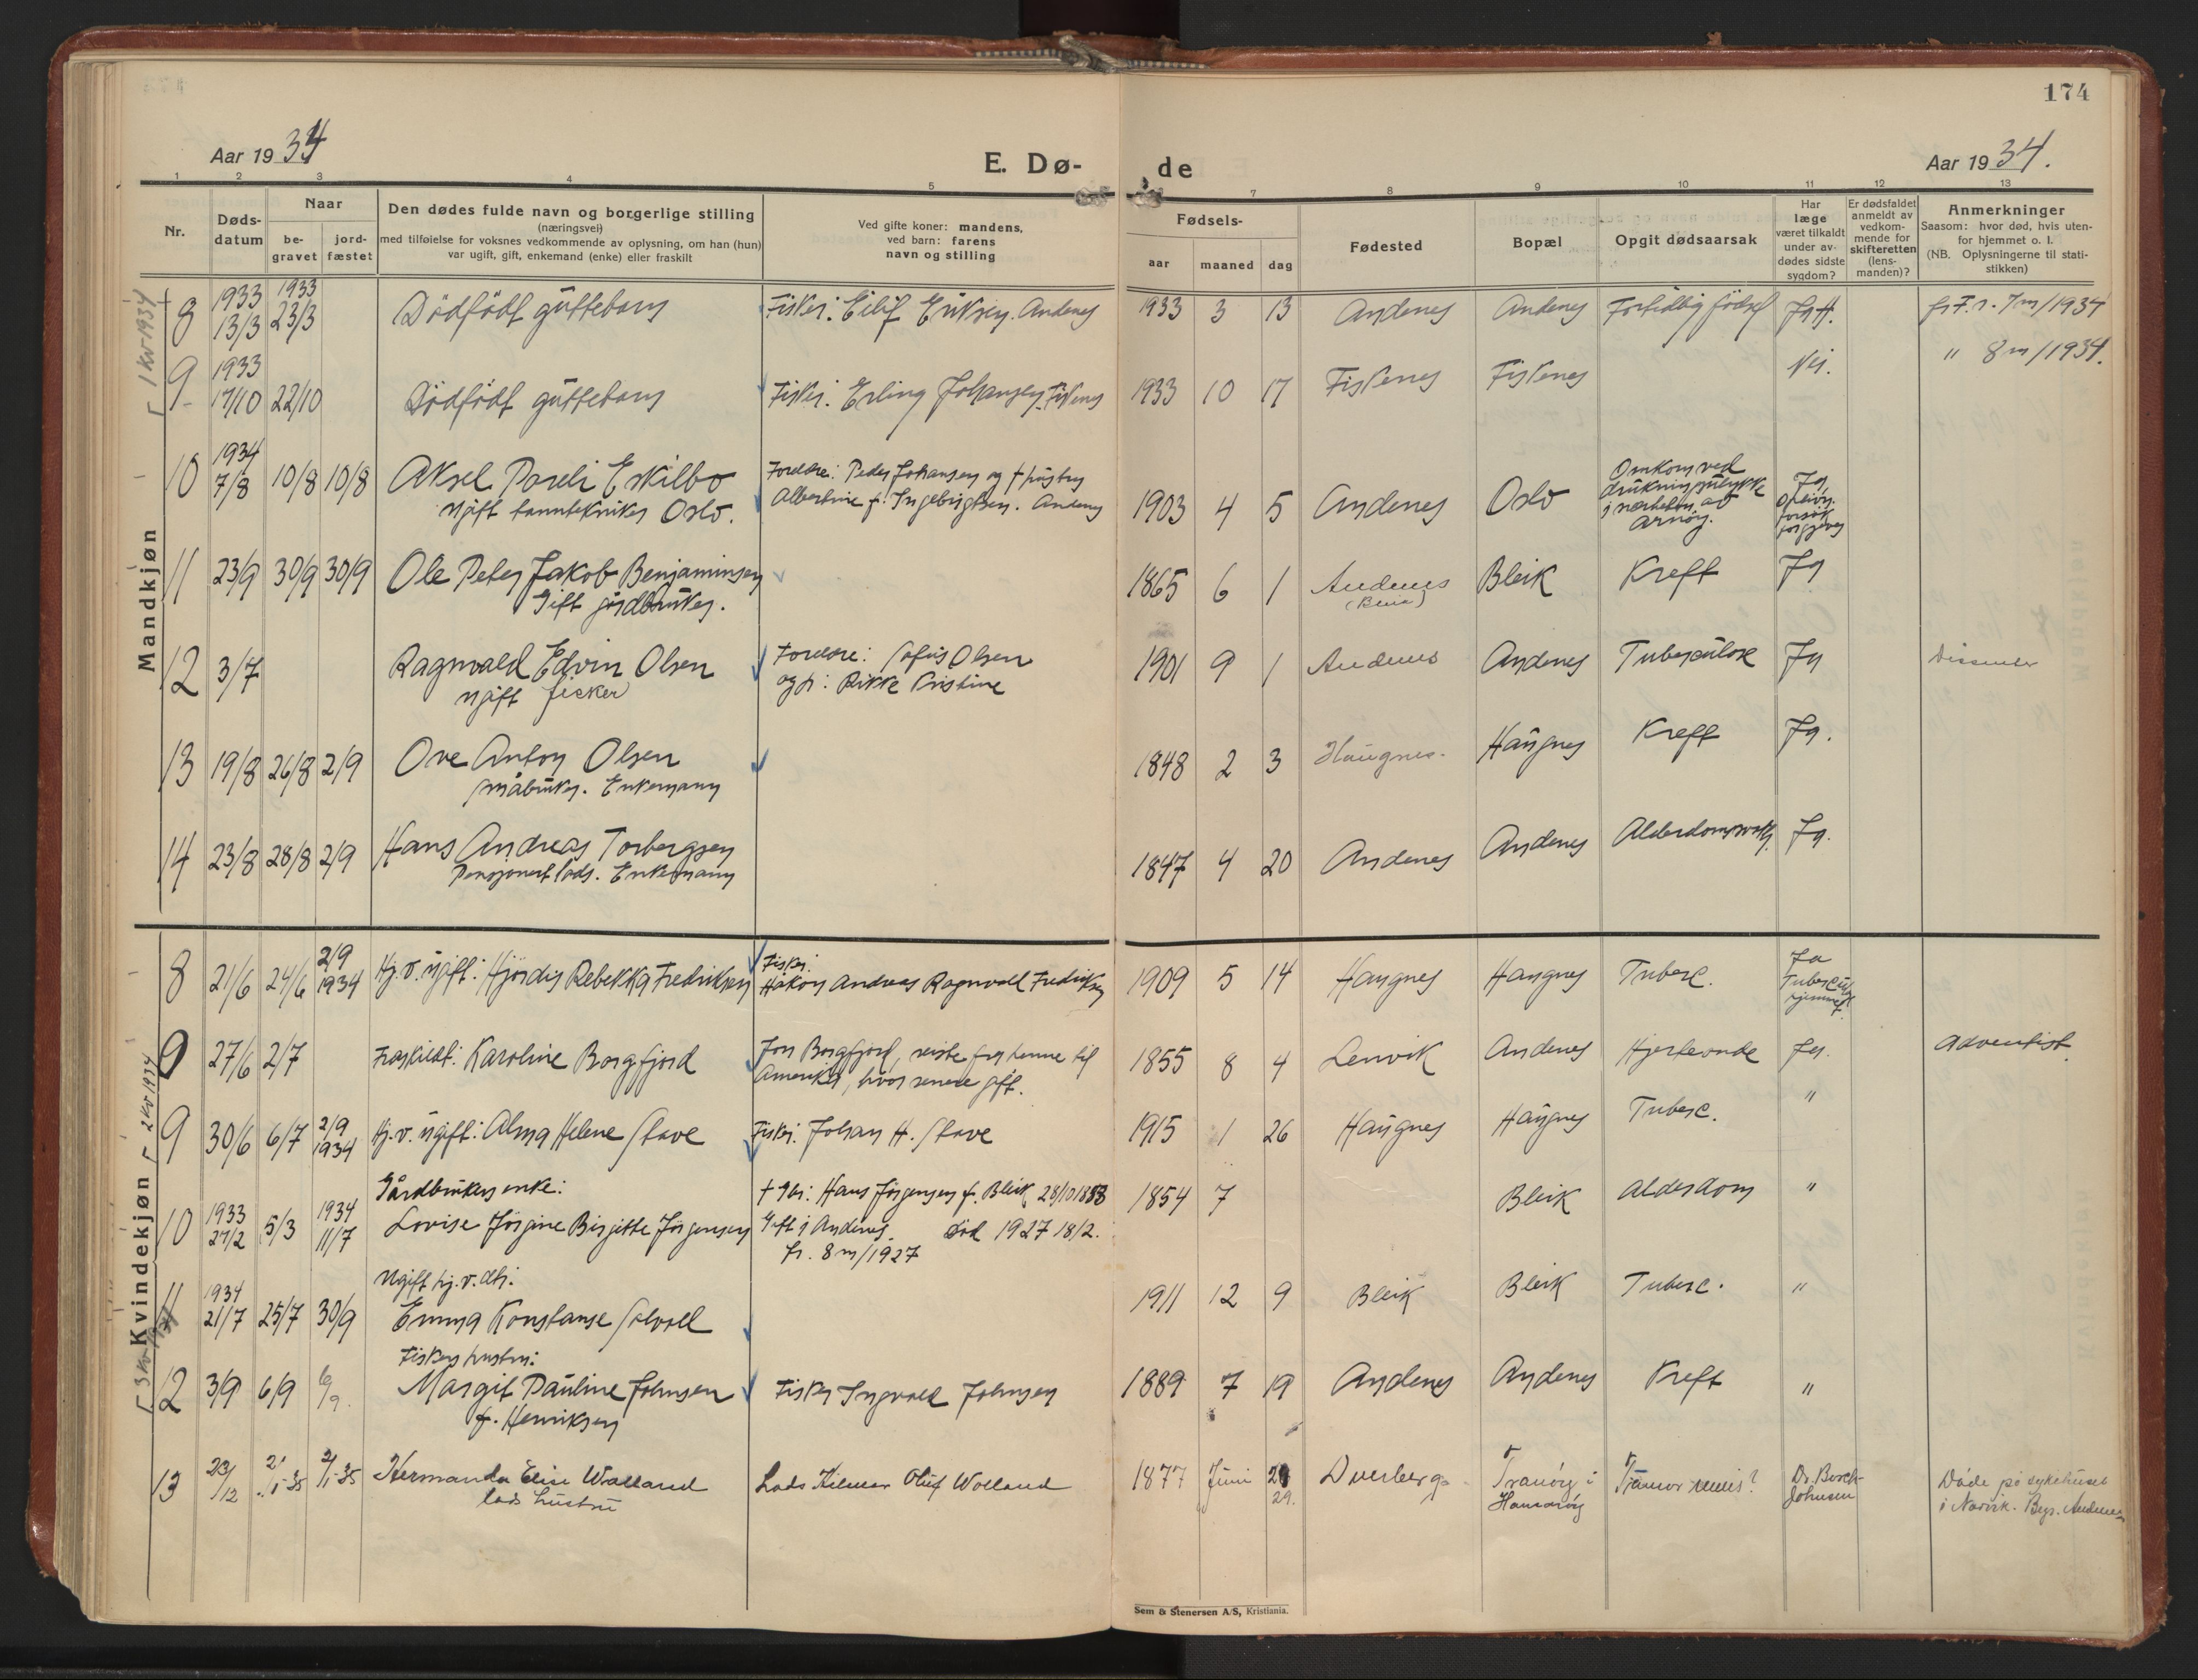 174
Aar 1934
E. Dø-
de
Aar 1934.
1 2 3 4 5 7 8 9 10 11 12 13
Nr.
Døds-
datum
Naar
be-
gravet
jord-
fæstet
Den dødes fulde navn og borgerlige stilling
(næringsvei)
med tilføielse for voksnes vedkommende av oplysning, om han (hun)
var ugift, gift, enkemand (enke) eller fraskilt
Ved gifte koner: mandens,
ved barn: farens
navn og stilling
Fødsels-
aar
maaned
dag
Fødested
Bopæl
Opgit dødsaarsak
Har
læge
været tilkaldt
under av-
dødes sidste
sygdom?
Er dødsfaldet
anmeldt av
vedkom-
mende for
skifteretten
(lens-
manden)?
Anmerkninger
Saasom: hvor død, hvis uten-
for hjemmet o. l.
(NB. Oplysningerne til stati-
stikken)
Mandkjøn
1 kv 1934
8 1933 13/3 1933 23/3 Dödfödt guttebarn Fisker: Eilif Eriksen. Andenes 1933 3 13 Andenes Andenes Fortidlig födsel fr F.r. 7m/1934
9 1933 17/10 22/10 Dödfödt guttebarn Fisker: Erling Johansen. Fiskenes 1933 10 17 Fiskenes Fiskenes Nei. " 8m/1934.
10 1934 7/8 10/8 10/8 Aksel Pareli Eskilbo
ugift tanntekniker Oslo.
Foreldre: Peder Johansen og + hustru
Albertine f. Ingebrigtsen. Andenes
1903 4 5 Andenes Oslo
Omkom ved
drukningsulykke
i nærheten av
Arnöy.
Ja,
opliv.
forsök
forgjeves
11 23/9 30/9 30/9 Ole Peter Jakob Benjaminsen
Gift jordbruker.
1865 6 1 Andenes Bleik Kreft Ja
12 3/7 Ragnvald Edvin Olsen
ugift fisker
Foreldre: Sofus Olsen
og h: Rikke Kristine
1901 9 1 Andenes Andenes Tuberkulose Ja Dissenter
13 19/8 26/8 2/9 Ove Anton Olsen
småbruker. Enkemann
1848 2 3 Haugnes. Haugnes Kreft Ja.
14 23/8 28/8 2/9 Hans Andreas Torbergsen
Pensjonert lods. Enkemann
1847 4 20 Andenes Andenes Alderdomssvakh. Ja.
Kvindekjøn
2 kv 1934
8 21/6 24/6 2/9 1934 Hj.v. ugift: Hjördis Rebekka Fredriksen
Fisker:
Håkon Andreas Ragnvald Fredriksen
1909 5 14 Haugnes Haugnes Tuberc.
Ja
Tuberkul.
hjemmet.
9 27/6 2/7 Fraskildt: Karoline Borgfjord
Jon Borgfjord, reiste fra henne til
Amerika, hvor senere gift.
1855 8 4 Lenvik Andenes Hjerteonde Ja. Adventist.
9 30/6 6/7 2/9 1934 Hj.v. ugift: Alma Helene Stave Fisker: Johan H. Stave 1915 1 26 Haugnes Haugnes Tuberc. "
Gårdbrukers enke:
10 1933 27/2 5/3 1934 11/7 Lovise Jörgine Birgitte Jörgensen
+ Gbr: Hans Jörgensen f. Bleik 28/10 1858
Gift i Andenes. död 1927 18/2.
fr. 8m/1927
1854 7 Bleik Alderdom "
3 kv 1934
Ugift hj.v. dtr.
11 1934 21/7 25/7 30/9 Emma Konstanse Solvoll 1911 12 9 Bleik Bleik Tuberc. "
Fiskers hustru:
12 3/9 6/9 6/9. Margit Pauline Johnsen
f. Henriksen
Fisker Ingvald Johnsen 1889 7 19 Andenes Andenes Kreft "
13 23/12 2/1-35 2/1-35 Hermanda Elise Walland
lods hustru
Lods Hilmar Oluf Walland
1877 Juni 29.
Dverberg
Tranöy i
Hamaröy
Dr. Borch-
Johnsen
Döde på sykehuset
i Narvik. Begr. Andenes
Sem & Stenersen A/S, Kristiania.